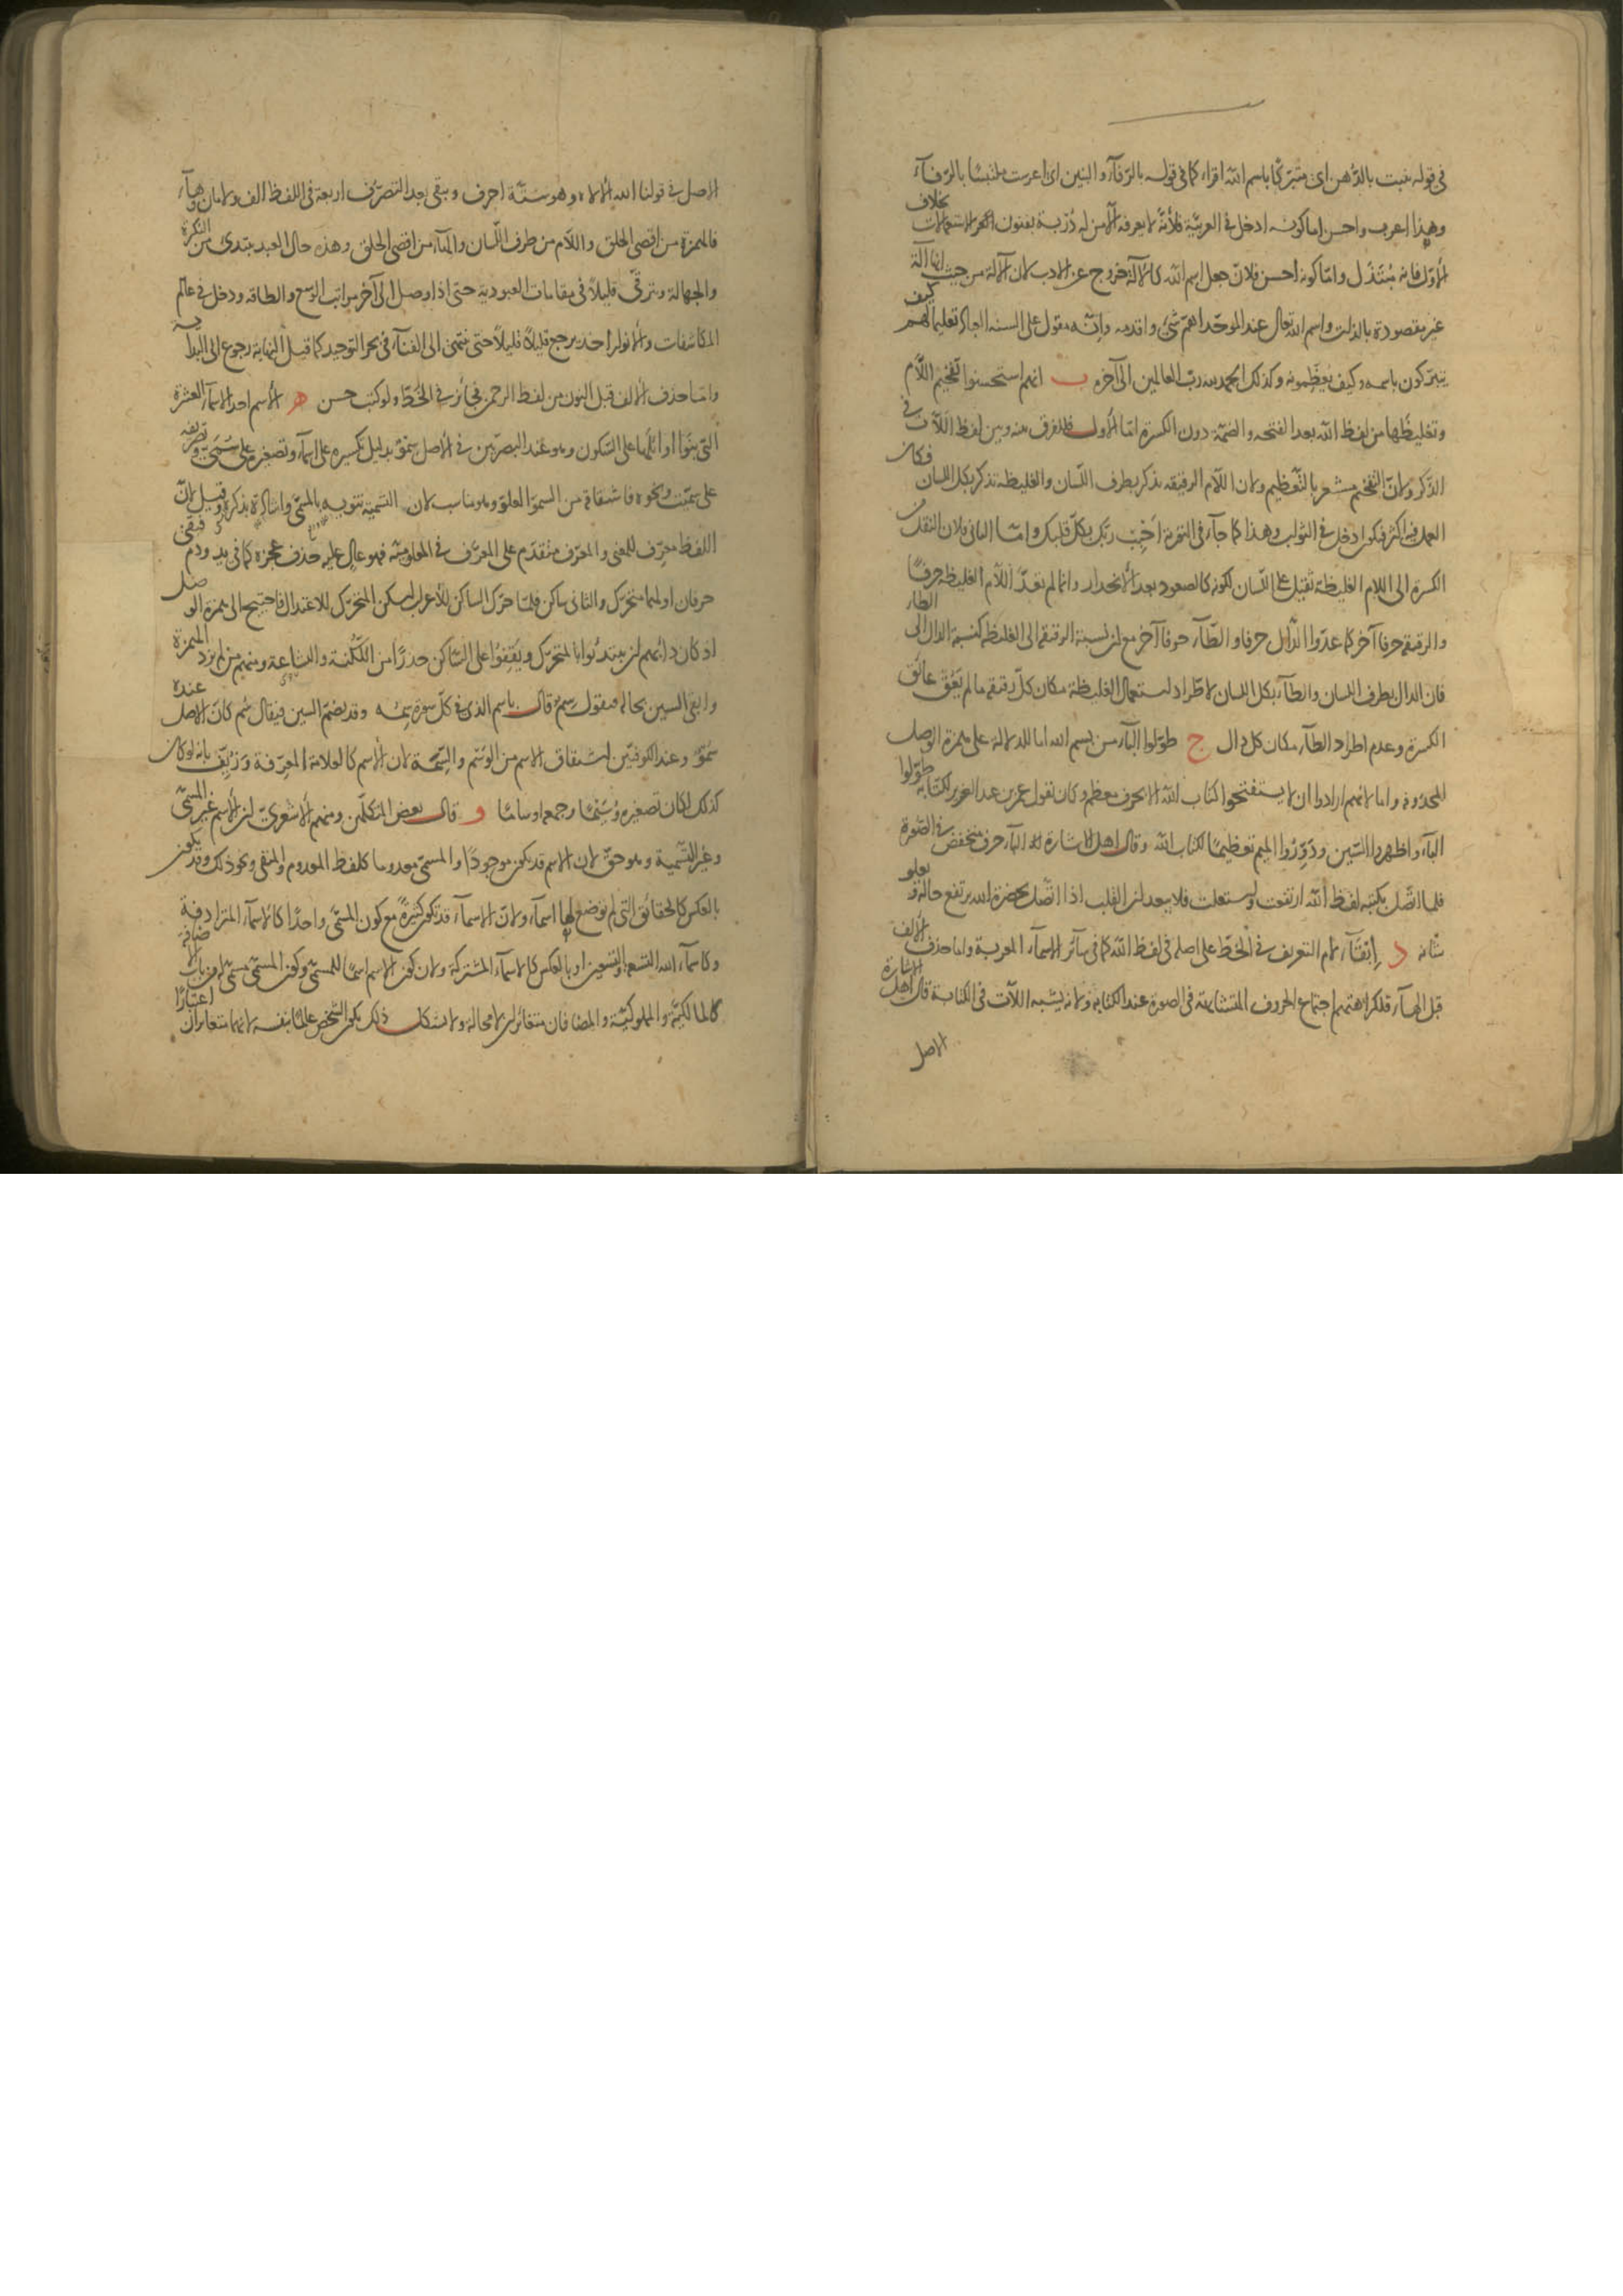 في قوله تنبت بالدهن اى متبركا باسم الله اقراء كما في قوله بالرفآء والبنين اى اعرست ملتبسا بالرفآء
وهذا اعرب واحسن اما كونه ادخل في العربية فلأنه لا يعرفه الا من له دربة بفنون الاستعمالات بخلاف
الأول فانه مبتذل واما كونه احسن فلان جعل اسم الله كالآلة خروج عن الادب لان الآلة من حيث انها آلة
غير مقصودة بالذات واسم الله تعالى عند الموحد اهم شئ واقدمه وانه مقول على السنة العباد تعليما لهم كيف
يتبركون باسمه وكيف يعظمونه وكذلك الحمد لله رب العالمين الى آخره ب انهم استحسنوا تفخيم اللام
وتغليظها من لفظ الله بعد الفتحة والضمة دون الكسرة اما الأول فللفرق بينه وبين لفظ اللآت في
الذكر ولان التفخيم مشعر بالتعظيم ولان اللام الرقيقة تذكر بطرف اللسان والغليظة تذكر بكل اللسان فكان
العمل فيه اكثر فيكون ادخل في الثواب وهذا كما جآء في التورية احبب ربك بكل قلبك واما الثانى فلان النقل من
الكسرة الى اللام الغليظة ثقيل على اللسان لكونه كالصعود بعد الانحدار وانما لم تعد اللام الغليظة حرفا
والرقيقة حرفا آخر كما عدوا الدال حرفا والطآء حرفا آخر مع ان نسبة الرقيقة الى الغليظة كنسبة الدال الى الطاء
فان الدال بطرف اللسان والطآء بكل اللسان لاطراد استعمال الغليظة مكان كل رقيقة ما لم يعق عائق
الكسرة وعدم اطراد الطآء مكان كل دال ج طولوا البآء من بسم الله اما للدلالة على همزة الوصل
المحذوفة واما لانهم ارادوا ان لا يستفتحوا كتاب الله الا بحرف معظم وكان يقول عمر بن عبد العزيز لكتابه طولوا
البآء واظهروا السين ودوروا الميم تعظيما لكتاب الله وقال اهل الاشارة البآء حرف منخفض في الصورة
فلما اتصل بكتبة لفظ الله ارتفعت واستعلت فلا يبعد ان القلب اذا اتصل بحضرة الله يرتفع حاله ويعلو
شانه د ابقآء لام التعريف في الخط على اصله في لفظ الله كما في سآئر الاسمآء المعربة واما حذف الألف
قبل الهآء فلكراهتهم اجتماع الحروف المتشابهة في الصورة عند الكتابة ولانه يشبه اللآت في الكتابة قال اهل الاشارة
الاصل
الاصل في قولنا الله الالاه وهو ستة احرف ويبقى بعد التصرف اربعة في اللفظ الف ولامان وهآء
فالهمزة من اقصى الحلق واللام من طرف اللسان والهآء من اقصى الحلق وهذه حال العبد يبتدئ من النكرة
والجهالة ويترقى قليلا في مقامات العبودية حتى اذا وصل الى آخر مراتب الوسع والطاقة ودخل في عالم
المكاشفات والانوار اخذ يرجع قليلا قليلا حتى ينتهى الى الفنآء في بحر التوحيد كما قيل النهاية رجوع الى البداية
واما حذف الالف قبل النون من لفظ الرحمن فجائز في الخط ولو كتب حسن ه الاسم احد الاسمآء العشرة
التى بنوا اوائلها على السكون وهو عند البصريين في الاصل سمو بدليل تكسيره على اسمآء وتصغيره على سمى وتصريفه
على سميت ونحوه فاشتقاقه من السمو العلو وهو مناسب لان التسمية تنويه بالمسمى واشادة بذكره وقيل لان
اللفظ معرف للمعنى والمعرف متقدم على المعرف في المعلومية فهو عال عليه حذف عجزه كما في يد ودم فبقى
حرفان اولهما متحرك والثانى ساكن فلما حرك الساكن للاعراب اسكن المتحرك للاعتدال فاحتيج الى همزة الوصل
اذ كان دابهم ان يبتدئوا بالمتحرك ويقفوا على الساكن حذرا من اللكنة والبشاعة ومنهم من لم يزد الهمزة
وابقى السين بحاله فيقول سم قال باسم الذى في كل سورة سمه وقد يضم السين فيقال سم كان الاصل عنده
سمو وعند الكوفيين اشتقاق الاسم من الوسم والسمة لان الاسم كالعلامة المعرفة وزيف بانه لو كان
كذلك لكان تصغيره وسيما وجمعه اوساما و قال بعض المتكلمين ومنهم الاشعرى ان الاسم غير المسمى
وغير التسمية وهو حق لان الاسم قد يكون موجودا والمسمى معدوما كلفظ المعدوم والمنفى ونحو ذلك وقد يكون
بالعكس كالحقائق التى لم توضع لها اسمآء ولان الاسمآء قد تكون كثيرة مع كون المسمى واحدا كالاسمآء المترادفة
وكاسمآء الله التسعة والتسعين او بالعكس كالاسمآء المشتركة ولان كون الاسم اسما للمسمى وكون المسمى مسمى له من باب الاضافة
كالمالكية والمملوكية والمضافان متغائران لا محالة ولا يشكل ذلك بكون الشخص عالما بنفسه لانهما متغايران اعتبارا